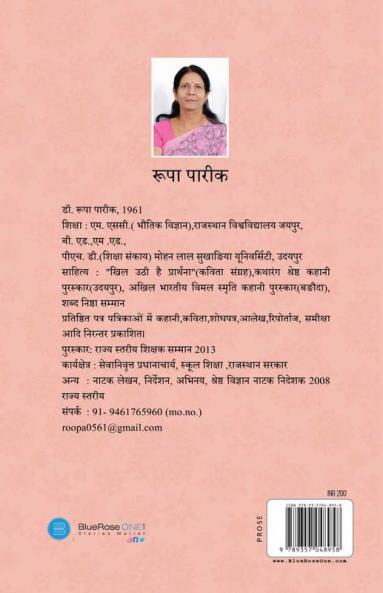 रूपा पारीक
डॉ. रूपा पारीक, 1961
शिक्षा : एम. एससी.( भौतिक विज्ञान),राजस्थान विश्वविद्यालय जयपुर,
बी. एड.,एम .एड.,
पीएच. डी.(शिक्षा संकाय) मोहन लाल सुखाङिया यूनिवर्सिटी, उदयपुर
साहित्य : "खिल उठी है प्रार्थना"(कविता संग्रह),कथारंग श्रेष्ठ कहानी
पुरस्कार(उदयपुर), अखिल भारतीय विमल स्मृति कहानी पुरस्कार(बङौदा),
शब्द निष्ठा सम्मान
प्रतिष्ठित पत्र पत्रिकाओं में कहानी,कविता,शोधपत्र,आलेख,रिपोर्ताज, समीक्षा
आदि निरन्तर प्रकाशित।
पुरस्कार: राज्य स्तरीय शिक्षक सम्मान 2013
कार्यक्षेत्र : सेवानिवृत्त प्रधानाचार्य, स्कूल शिक्षा ,राजस्थान सरकार
अन्य : नाटक लेखन, निर्देशन, अभिनय, श्रेष्ठ विज्ञान नाटक निदेशक 2008
राज्य स्तरीय
संपर्क : 91- 9461765960 (mo.no.)
roopa0561@gmail.com
INR 200
PROSE
9 789357 048958
www.BlueRoseOne.com
BlueRose ONE1
Stories Matter